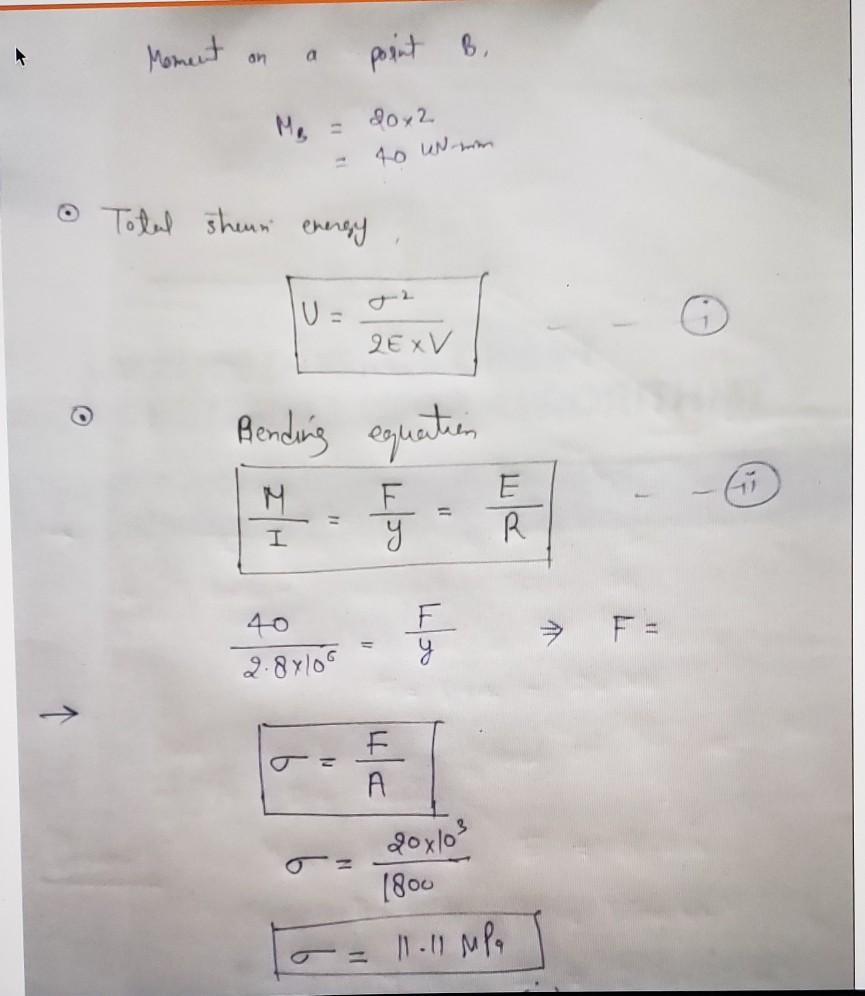 Moment on a point B,
M_B = 20×2
= 40 kN-mm
⊙ Total energy,
U = σ² / 2E×V -- (i)
⊙ Bending equation
M/I = F/y = E/R -- (ii)
40 / 2.8×10⁶ = F/y ⇒ F =
→
σ = F/A
σ = 20×10³ / 1800
σ = 11.11 MPa